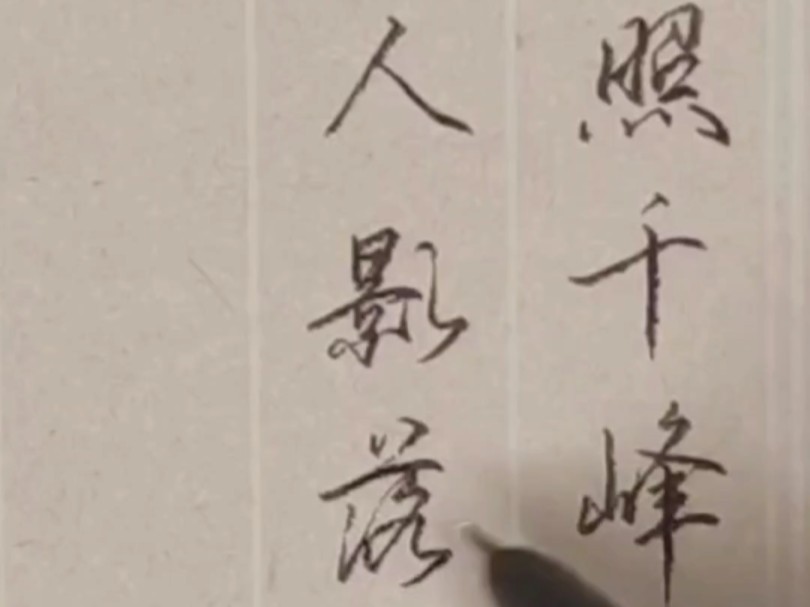 照千峰
人影落